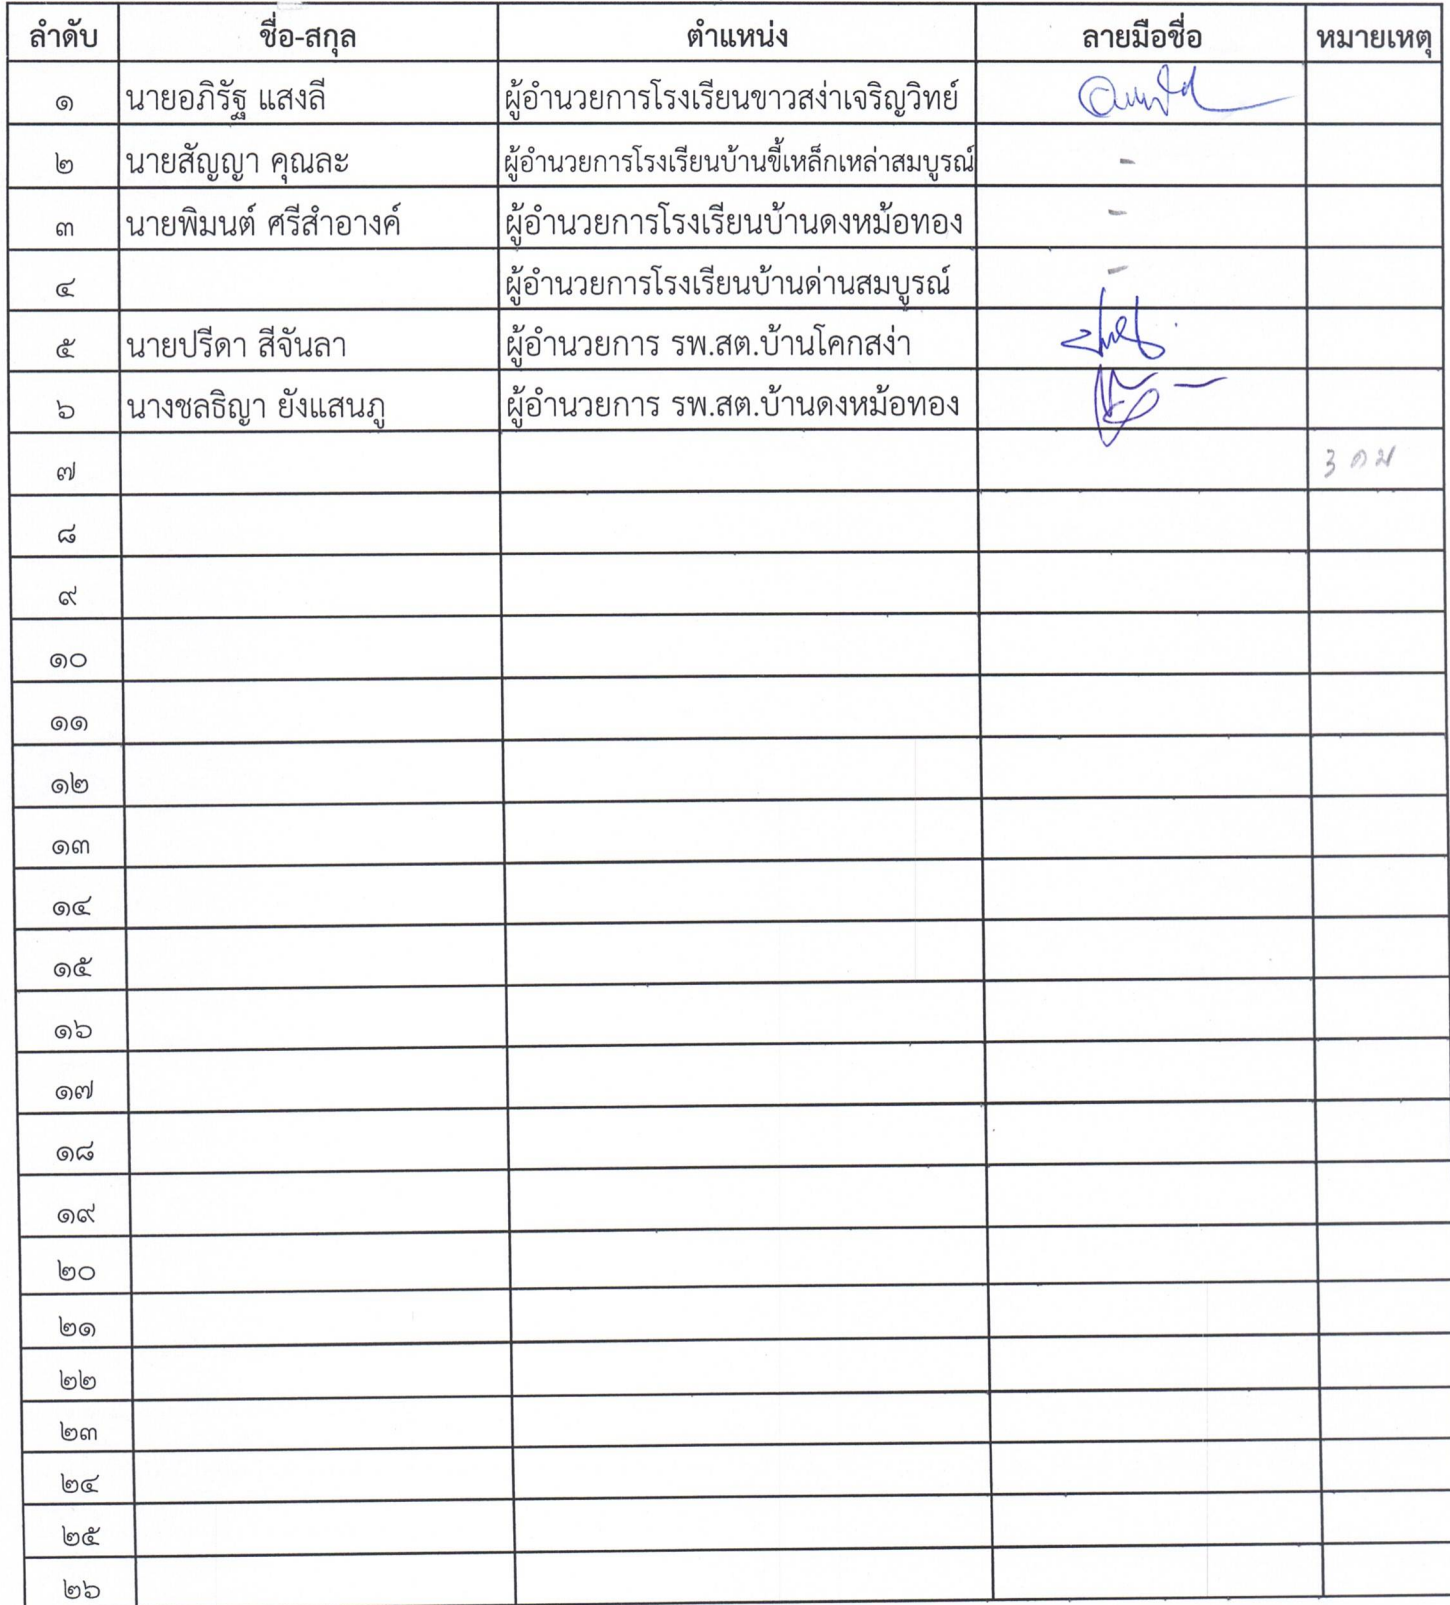 ลำดับ ชื่อ-สกุล ตำแหน่ง ลายมือชื่อ หมายเหตุ
๑ นายอภิรัฐ แสงลี ผู้อำนวยการโรงเรียนขาวสง่าเจริญวิทย์
๒ นายสัญญา คุณละ ผู้อำนวยการโรงเรียนบ้านขี้เหล็กเหล่าสมบูรณ์ -
๓ นายพิมนต์ ศรีสำอางค์ ผู้อำนวยการโรงเรียนบ้านดงหม้อทอง -
๔ ผู้อำนวยการโรงเรียนบ้านด่านสมบูรณ์ -
๕ นายปรีดา สีจันลา ผู้อำนวยการ รพ.สต.บ้านโคกสง่า
๖ นางชลธิญา ยังแสนภู ผู้อำนวยการ รพ.สต.บ้านดงหม้อทอง
๗ 3 คน
๘
๙
๑๐
๑๑
๑๒
๑๓
๑๔
๑๕
๑๖
๑๗
๑๘
๑๙
๒๐
๒๑
๒๒
๒๓
๒๔
๒๕
๒๖